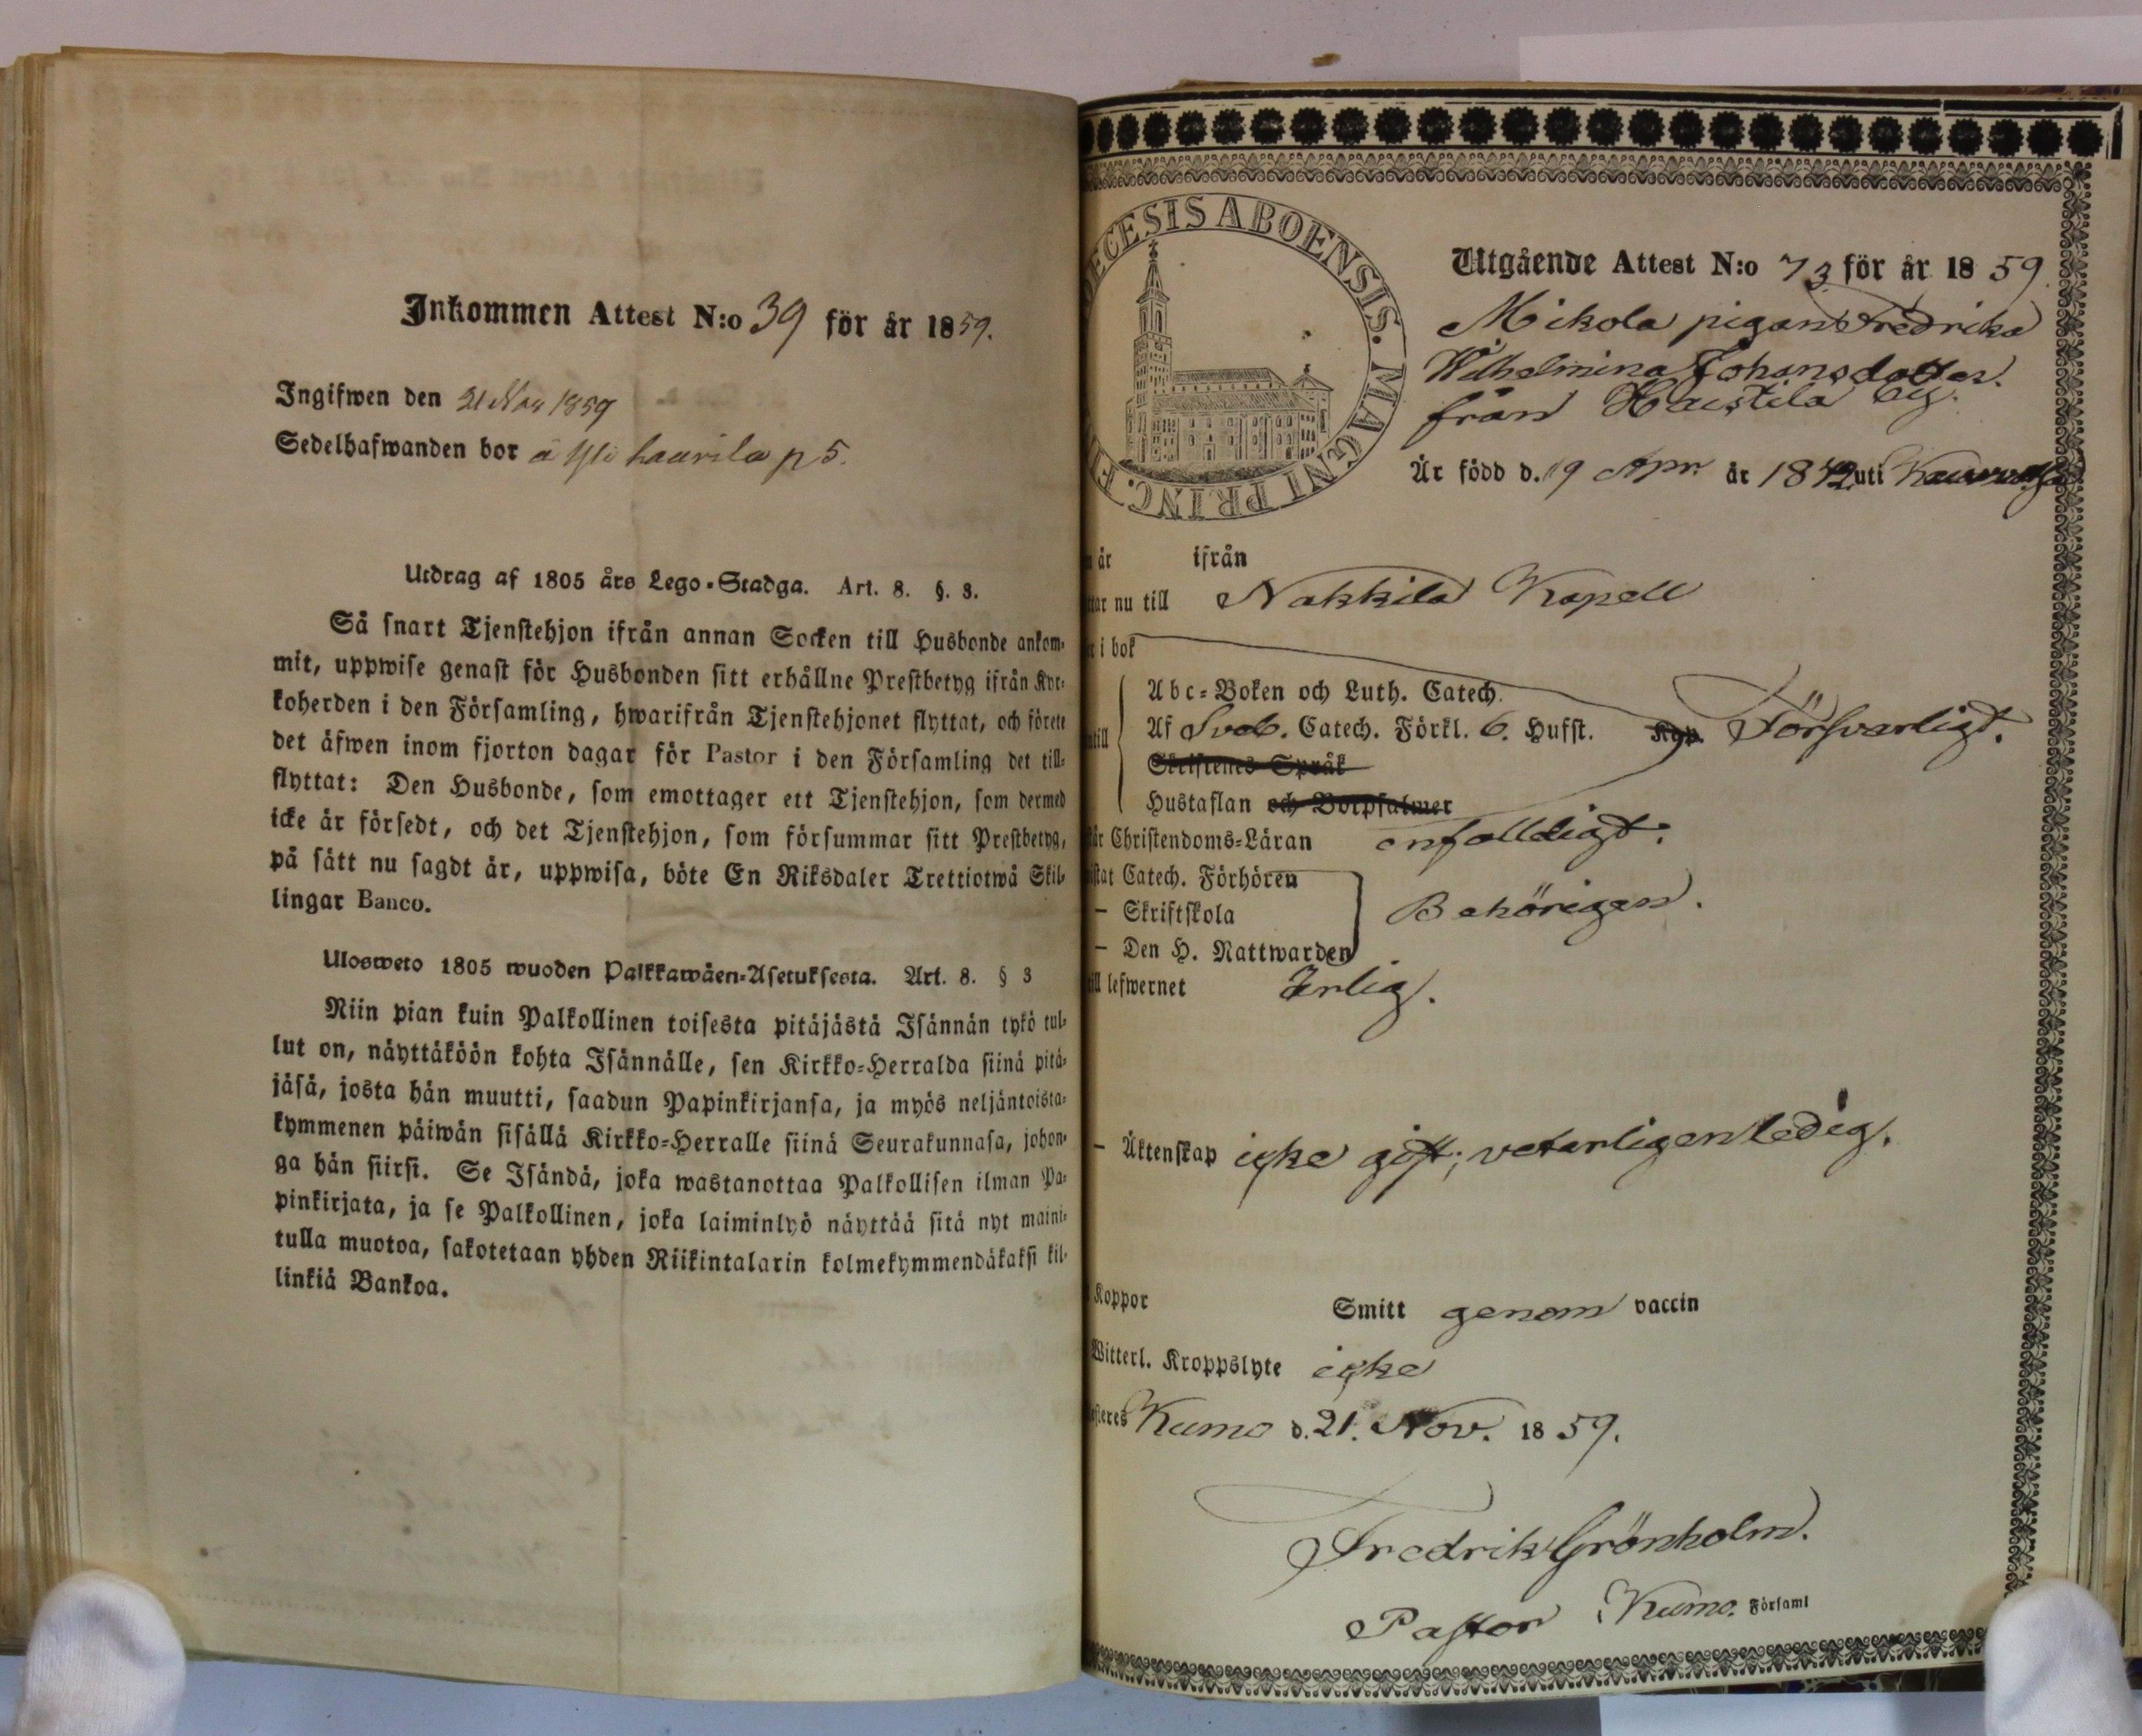 Inkommen Attest N:o 39 för år 1859.
Ingifwen den 21 Nov 1859
Sedelhafwanden bor å Yli haurila p 5.
Utdrag af 1805 års Lego-Stadga. Art. 8. §. 3.
Så snart Tjenstehjon ifrån annan Socken till Husbonde ankom-
mit, uppwise genast för Husbonden sitt erhållne Prestbetyg ifrån Kyr-
koherden i den Församling, hwarifrån Tjenstehjonet flyttat, och förete
det äfwen inom fjorton dagar för Pastor i den Församling det till-
flyttat: Den Husbonde, som emottager ett Tjenstehjon, som dermed
icke är försedt, och det Tjenstehjon, som försummar sitt Prestbetyg,
på sätt nu sagdt är, uppwisa, böte En Riksdaler Trettiotwå Skil-
lingar Banco.
Ulosweto 1805 wuoden Palkkawäen-Asetuksesta. Art. 8. § 3
Niin pian kuin Palkollinen toisesta pitäjästä Isännän tykö tul-
lut on, näyttäköön kohta Isännälle, sen Kirkko-Herralda siinä pitä-
jäsä, josta hän muutti, saadun Papinkirjansa, ja myös neljäntoista-
kymmenen päiwän sisällä Kirkko-Herralle siinä Seurakunnasa, johon-
ga hän siirsi. Se Isändä, joka wastanottaa Palkollisen ilman Pa-
pinkirjata, ja se Palkollinen, joka laiminlyö näyttää sitä nyt maini-
tulla muotoa, sakotetaan yhden Riikintalarin kolmekymmendäkaksi kil-
linkiä Bankoa.
ECESIS ABOENSIS. MAGNI PRINC. F
Utgående Attest N:o 73 för år 1859.
Mikola pigan Fredrika
Wilhelmina Johansdotter
från Haistila by.
Är född d. 19 Apr. år 1842 uti
är ifrån
nu till Nakkila Kapell
i bok
Abc-Boken och Luth. Catech.
Af Sveb. Catech. Förkl. 6. Hufst. Kap. Försvarligt.
Skriftenes Språk
Hustaflan och Botpsalmer
Christendoms-Läran enfalldigt.
Catech. Förhören
– Skriftskola Behörigen.
– Den H. Nattwarden
lefwernet Ärlig.
– Äktenskap icke gift; veterligen ledig.
Koppor Smitt genom vaccin
Witterl. Kroppslyte icke
Kumo d. 21. Nov. 1859.
Fredrik Grönholm.
Pastor i Kumo. Församl